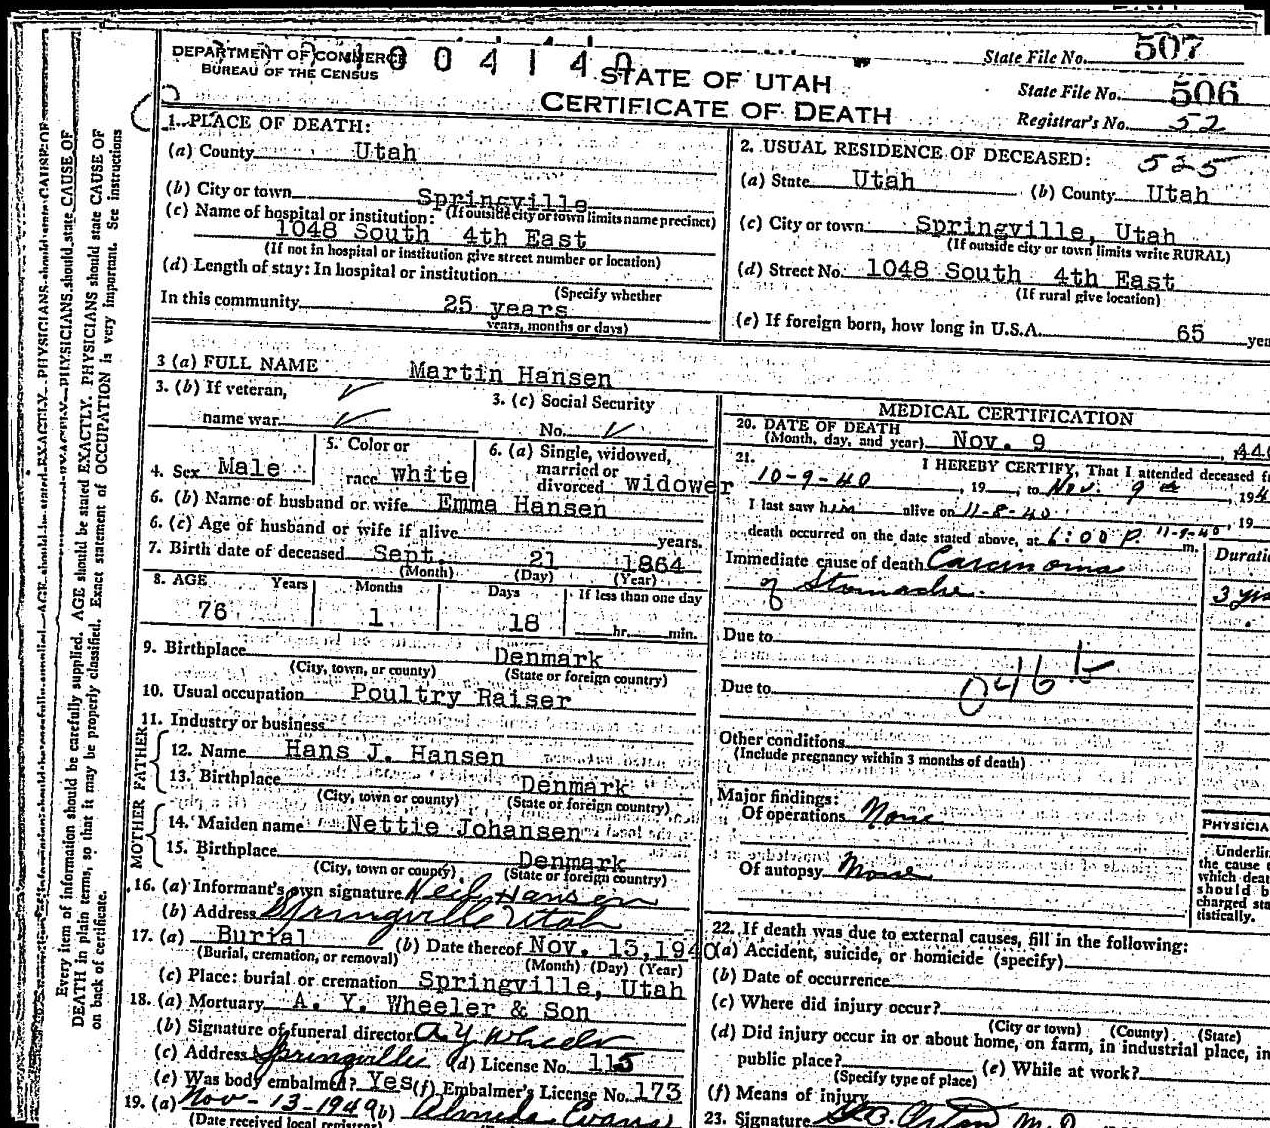 DEPARTMENT OF COMMERCE
BUREAU OF THE CENSUS
0 0 4 1 4 0
STATE OF UTAH
CERTIFICATE OF DEATH
State File No. 507
State File No. 506
Registrar's No. 52
1. PLACE OF DEATH:
(a) County Utah
(b) City or town Springville
(If outside city or town limits name precinct)
(c) Name of hospital or institution:
1048 South 4th East
(If not in hospital or institution give street number or location)
(d) Length of stay: In hospital or institution
(Specify whether
In this community 25 years
years, months or days)
2. USUAL RESIDENCE OF DECEASED: 525
(a) State Utah (b) County Utah
(c) City or town Springville, Utah
(If outside city or town limits write RURAL)
(d) Street No. 1048 South 4th East
(If rural give location)
(e) If foreign born, how long in U.S.A. 65 yea
3 (a) FULL NAME Martin Hansen
3. (b) If veteran,
name war
3. (c) Social Security
No.
4. Sex Male
5. Color or
race white
6. (a) Single, widowed,
married or
divorced widower
6. (b) Name of husband or wife Emma Hansen
6. (c) Age of husband or wife if alive years.
7. Birth date of deceased Sept. 21 1864
(Month) (Day) (Year)
8. AGE Years Months Days If less than one day
76 1 18 hr. min.
9. Birthplace Denmark
(City, town, or county) (State or foreign country)
10. Usual occupation Poultry Raiser
11. Industry or business
FATHER
12. Name Hans J. Hansen
13. Birthplace Denmark
(City, town or county) (State or foreign country)
MOTHER
14. Maiden name Nettie Johansen
15. Birthplace Denmark
(City, town or county) (State or foreign country)
16. (a) Informant's own signature Neil Hansen
(b) Address Springville Utah
17. (a) Burial (b) Date thereof Nov. 13, 1940
(Burial, cremation, or removal) (Month) (Day) (Year)
(c) Place: burial or cremation Springville, Utah
18. (a) Mortuary A. Y. Wheeler & Son
(b) Signature of funeral director A Y Wheeler
(c) Address Springville (d) License No. 115
(e) Was body embalmed? Yes (f) Embalmer's License No. 173
19. (a) Nov-13-1940 (b) Almeda Evans
(Date received local registrar)
MEDICAL CERTIFICATION
20. DATE OF DEATH
(Month, day, and year) Nov. 9
21. I HEREBY CERTIFY, That I attended deceased fr
10-9-40, 19 , to Nov. 9th, 194
I last saw him alive on 11-8-40, 19
death occurred on the date stated above, at 6:00 P. m. 11-9-40
Immediate cause of death Carcinoma
of Stomache.
Duratio
3 yrs
Due to
Due to
Other conditions
(Include pregnancy within 3 months of death)
Major findings:
Of operations None
Of autopsy None
PHYSICIA
Underlin
the cause t
which deat
should b
charged sta
tistically.
22. If death was due to external causes, fill in the following:
(a) Accident, suicide, or homicide (specify)
(b) Date of occurrence
(c) Where did injury occur?
(City or town) (County) (State)
(d) Did injury occur in or about home, on farm, in industrial place, in
public place? (e) While at work?
(Specify type of place)
(f) Means of injury
23. Signature Orton M.D.
Every item of information should be carefully supplied. AGE should be stated EXACTLY. PHYSICIANS should state CAUSE OF
DEATH in plain terms, so that it may be properly classified. Exact statement of OCCUPATION is very important. See instructions
on back of certificate.